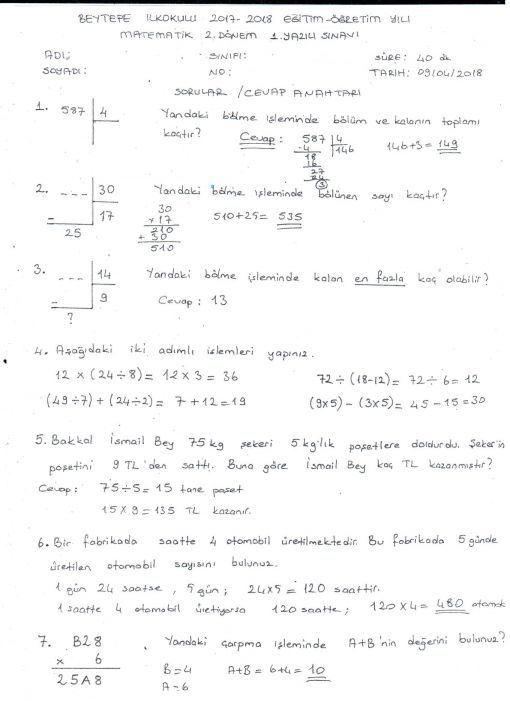 BEYTEPE İLKOKULU 2017-2018 EĞİTİM-ÖĞRETİM YILI
MATEMATİK 2.DÖNEM 1.YAZILI SINAVI
ADI: SINIFI: SÜRE: 40 dk
SOYADI: NO: TARİH: 09/04/2018
SORULAR / CEVAP ANAHTARI
1. 587 | 4 Yandaki bölme işleminde bölüm ve kalanın toplamı
kaçtır? Cevap: 587 | 4 146+3= 149
-4 146
18
16
27
24
3
2. --- | 30 Yandaki bölme işleminde bölünen sayı kaçtır?
17
25
30
x 17
210
+ 30
510
510+25= 535
3. --- | 14 Yandaki bölme işleminde kalan en fazla kaç olabilir?
9 Cevap: 13
?
4. Aşağıdaki iki adımlı işlemleri yapınız.
12 x (24÷8)= 12 x 3 = 36 72÷(18-12)= 72÷6=12
(49÷7)+(24÷2)= 7+12=19 (9x5)-(3x5)= 45-15=30
5. Bakkal İsmail Bey 75 kg şekeri 5 kg'lık poşetlere doldurdu. Şekerin
poşetini 9 TL'den sattı. Buna göre İsmail Bey kaç TL kazanmıştır?
Cevap: 75÷5=15 tane poşet
15 x 9 = 135 TL kazanır.
6. Bir fabrikada saatte 4 otomobil üretilmektedir. Bu fabrikada 5 günde
üretilen otomobil sayısını bulunuz.
1 gün 24 saatse, 5 gün; 24x5=120 saattir.
1 saatte 4 otomobil üretiyorsa 120 saatte; 120x4= 480 otomob
7. B28 Yandaki çarpma işleminde A+B'nin değerini bulunuz?
x 6 B=4 A+B= 6+4= 10
25A8 A=6